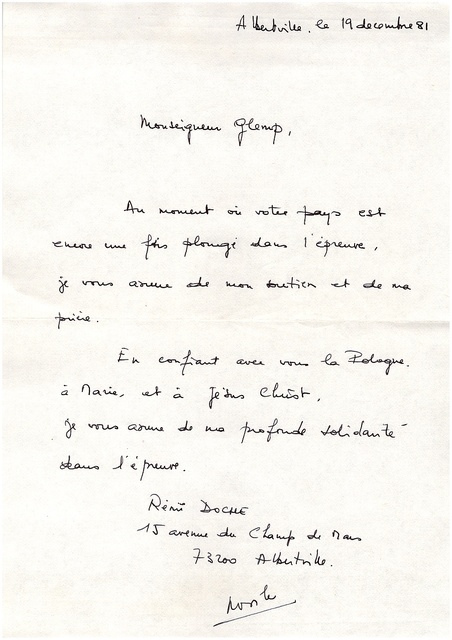 Albertville, le 19 decembre 81
Monseigneur Glemp,
Au moment où votre pays est
encore une fois plongé dans l'épreuve,
je vous assure de mon soutien et de ma
prière.
En confiant avec vous la Pologne.
à Marie, et à Jésus Christ,
je vous assure de ma profonde solidarité
dans l'épreuve.
Rémi DOCHE
15 avenue du Champ de Mars
73200 Albertville.